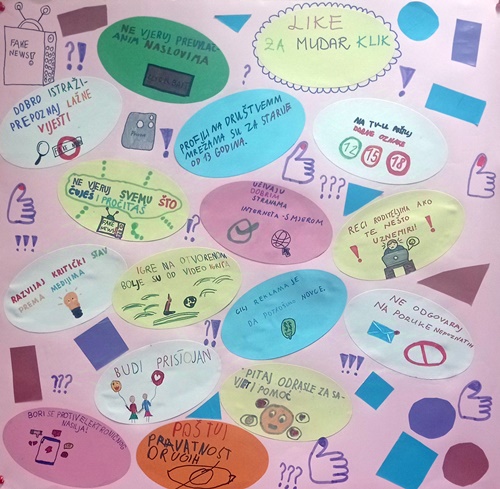 FAKE
NEWS!!
NE VJERUJ PREVELIČ-
ANIM NASLOVIMA
LIKE
ZA MUDAR KLIK
DOBRO ISTRAŽI-
PREPOZNAJ LAŽNE
VIJESTI
PROFILI NA DRUŠTVENIM
MREŽAMA SU ZA STARIJE
OD 13 GODINA.
NA TV-U POŠTUJ
DOBNE OZNAKE
12 15 18
NE VJERUJ SVEMU ŠTO
ČUJEŠ I PROČITAŠ
FAKE
NEWS
UŽIVAJU
DOBRIM
STRANAMA
INTERNETA-S MJEROM
RECI RODITELJIMA AKO
TE NEŠTO
UZNEMIRI!
RAZVIJAJ KRITIČKI STAV
PREMA MEDIJIMA
IGRE NA OTVORENOM
BOLJE SU OD VIDEO IGRICA
CILJ REKLAMA JE
DA POTROŠIŠ NOVCE.
NE ODGOVARAJ
NA PORUKE NEPOZNATIH
BUDI PRISTOJAN
PITAJ ODRASLE ZA SA-
VJET I POMOĆ
BORI SE PROTIV ELEKTRONIČKOG
NASILJA!
POŠTUJ
PRAVATNOST
DRUGIH